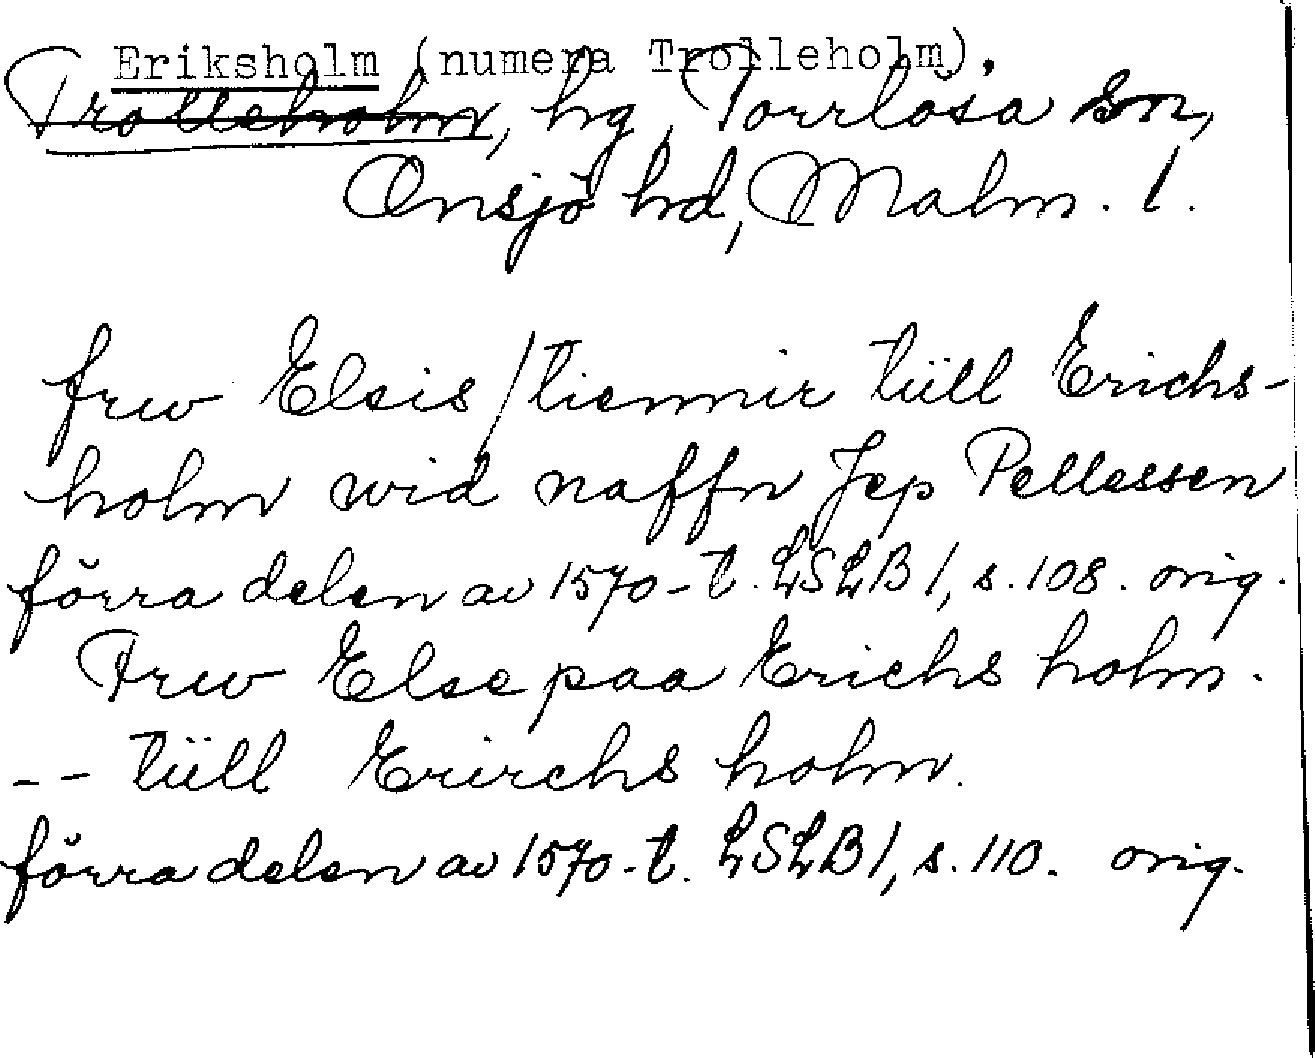 Eriksholm (numera Trolleholm).
Trolleholm, hg, Torrlösa sn,
Onsjö hd, Malm. l.
frw Elsis / tiennir tüll Erichs-
holm wid naffn Jep Pellessen
förra delen av 1570-t. LSLB 1, s. 108. orig.
Frw Else paa Erichs holm.
-- tüll Erirchs holm.
förra delen av 1570-t. LSLB 1, s. 110. orig.